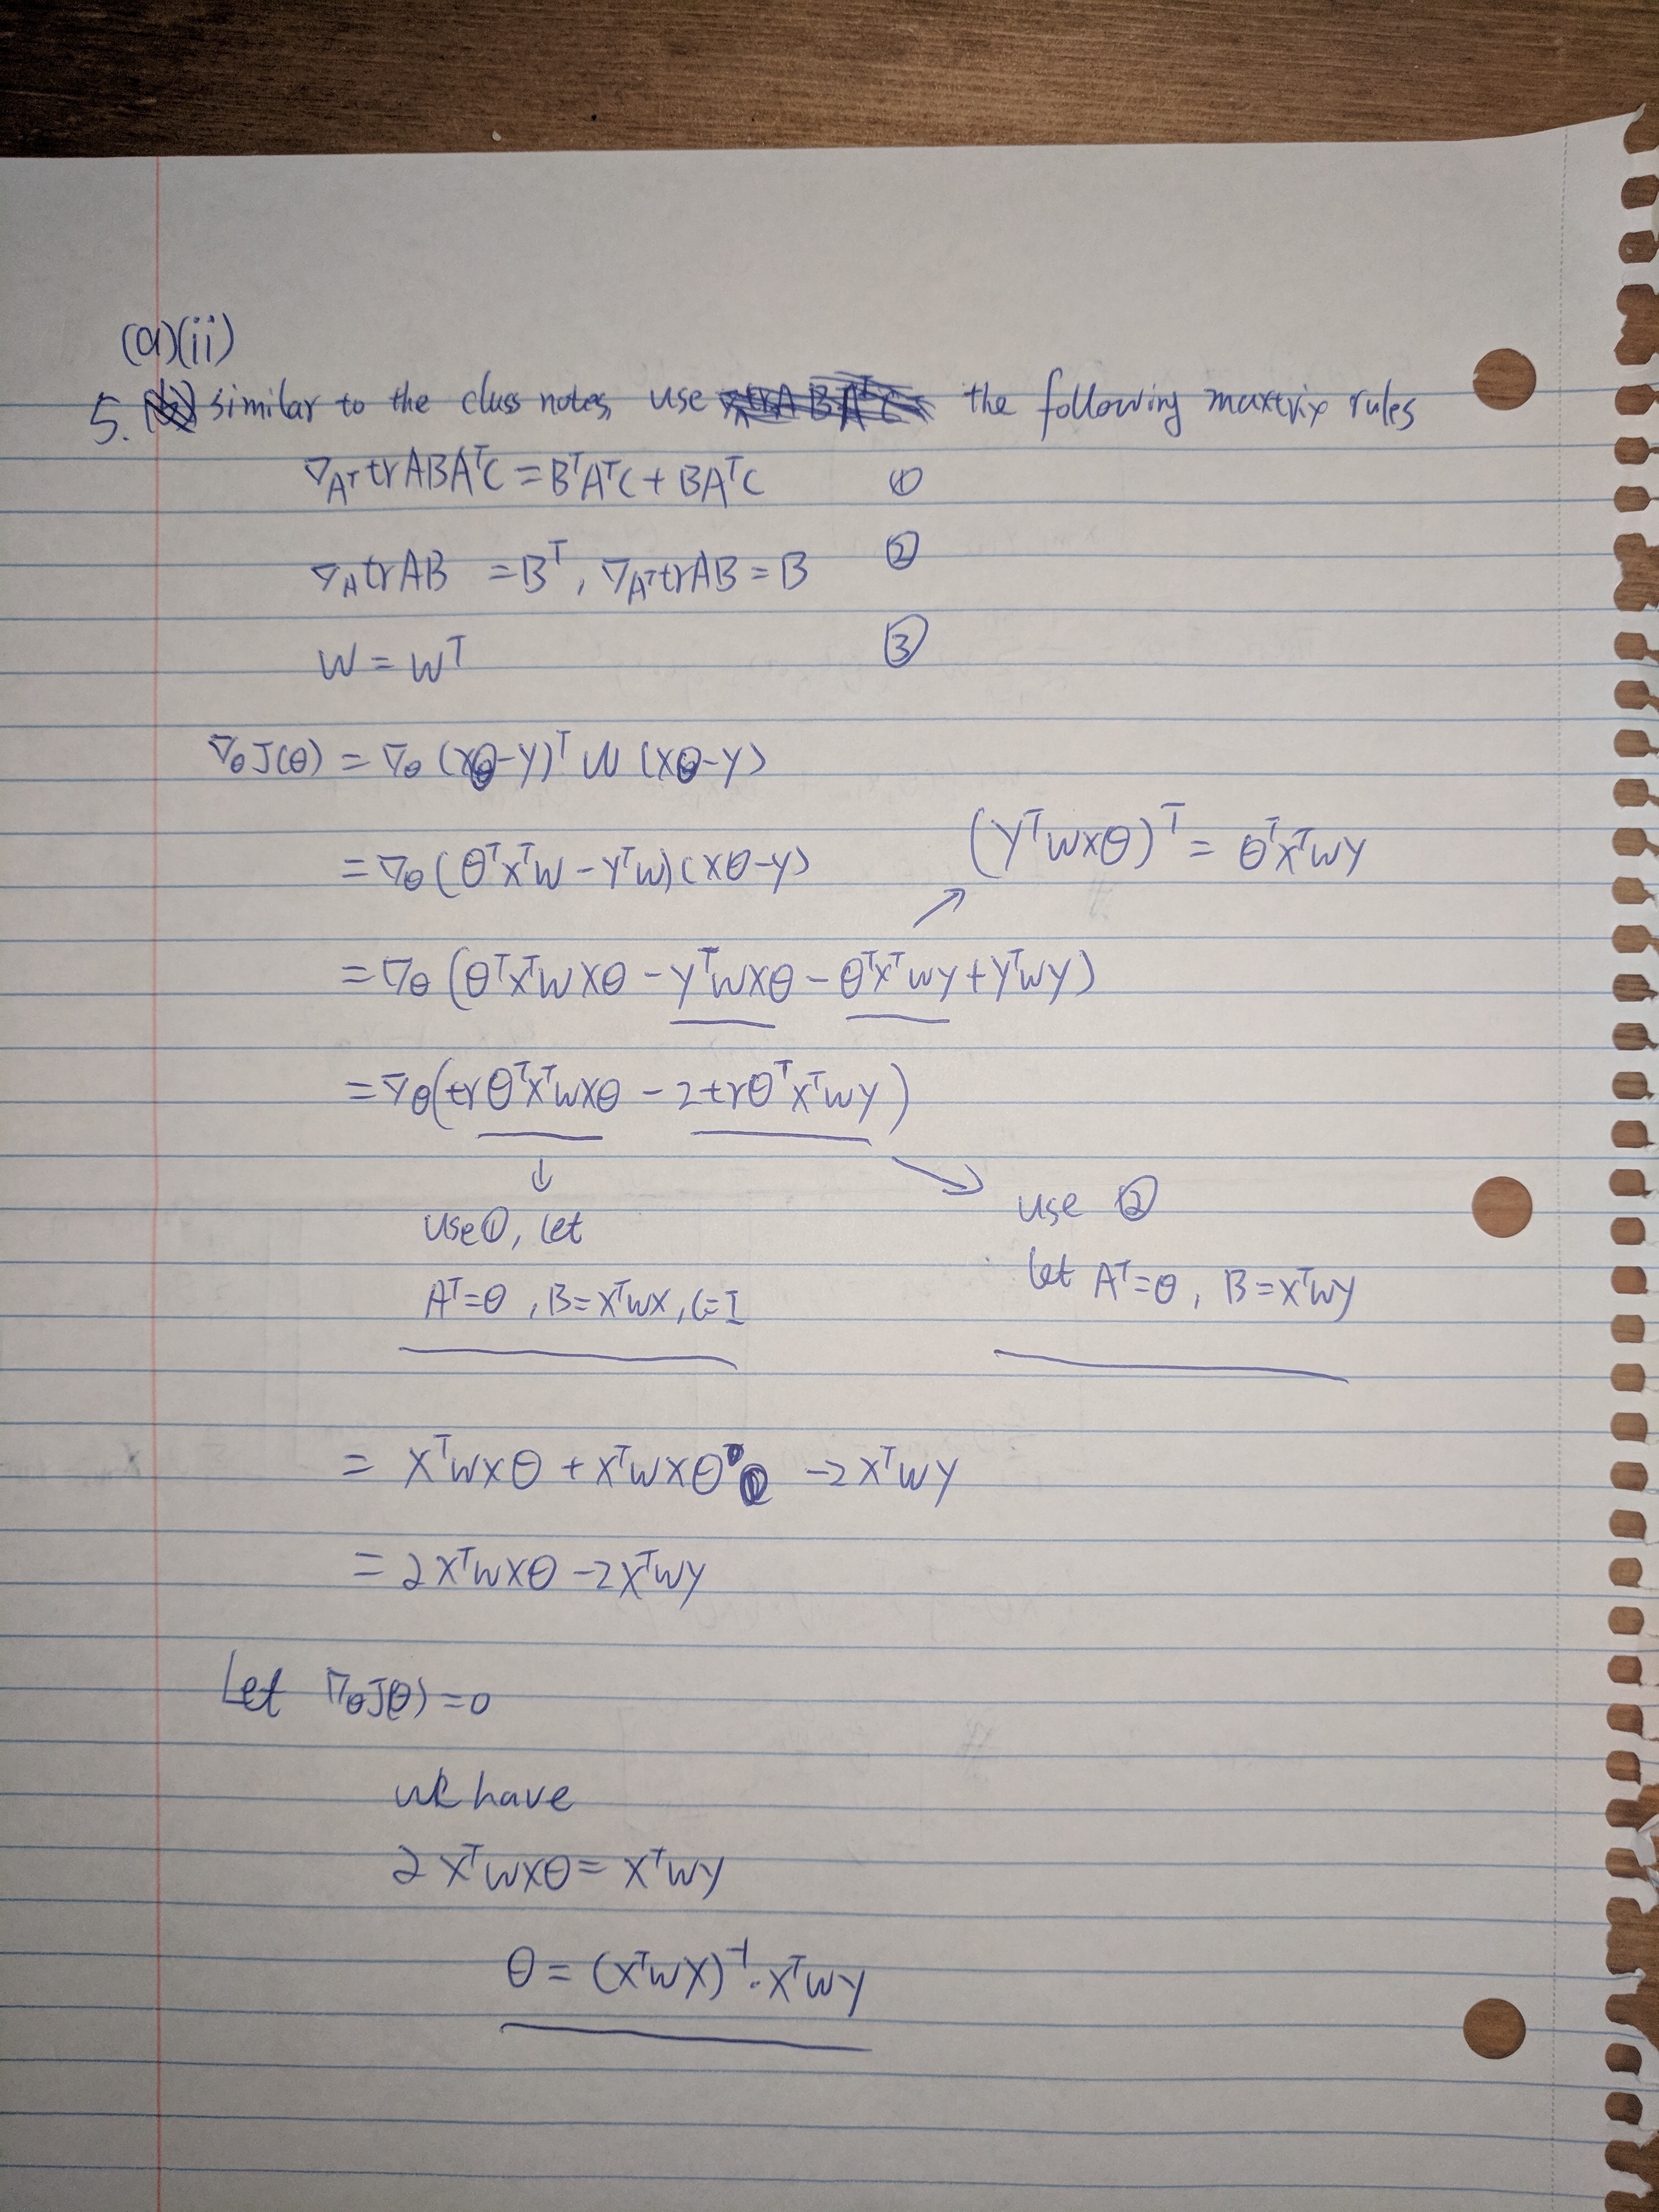 (a)(ii)
5. similar to the class notes, use the following maxtrix rules
∇_{A^T} trABA^TC = B^TA^TC + BA^TC ①
∇_A trAB = B^T, ∇_{A^T} trAB = B ②
W = W^T ③
∇_θ J(θ) = ∇_θ (Xθ-Y)^T W (Xθ-Y)
= ∇_θ (θ^TX^TW - Y^TW)(Xθ-Y)
(Y^TWXθ)^T = θ^TX^TWY
= ∇_θ (θ^TX^TWXθ - Y^TWXθ - θ^TX^TWY + Y^TWY)
= ∇_θ (trθ^TX^TWXθ - 2trθ^TX^TWY)
↓
use ①, let
A^T=θ, B=X^TWX, C=I
use ②
let A^T=θ, B=X^TWY
= X^TWXθ + X^TWXθ - 2X^TWY
= 2X^TWXθ - 2X^TWY
Let ∇_θ J(θ) = 0
we have
2X^TWXθ = X^TWY
θ = (X^TWX)^{-1}·X^TWY